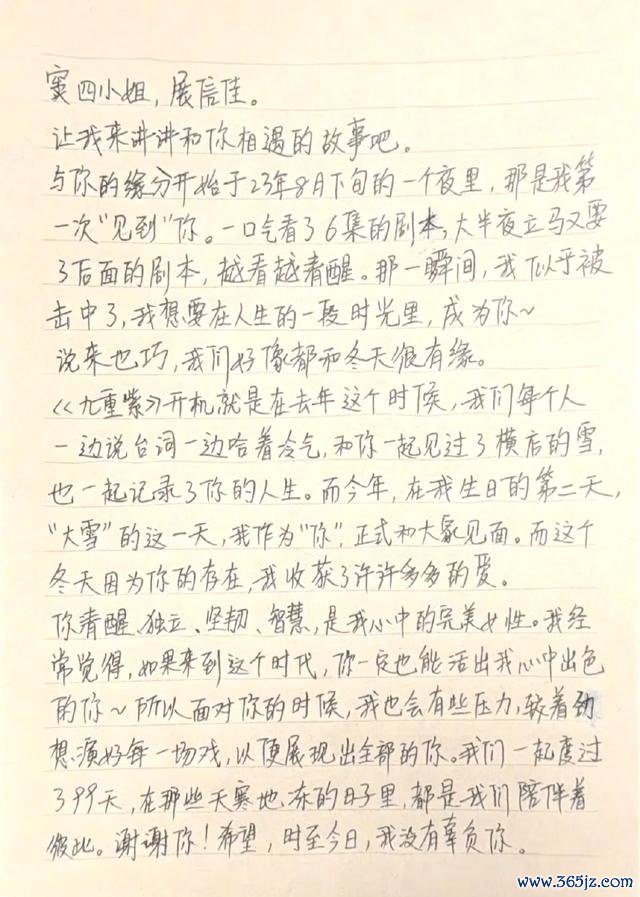 窦四小姐，展信佳。
让我来讲讲和你相遇的故事吧。
与你的缘分开始于23年8月下旬的一个夜里，那是我第
一次“见到”你。一口气看了6集的剧本，大半夜立马又要
了后面的剧本，越看越清醒。那一瞬间，我似乎被
击中了，我想要在人生的一段时光里，成为你~
说来也巧，我们好像都和冬天很有缘。
《九重紫》开机就是在去年这个时候，我们每个人
一边说台词一边哈着冷气，和你一起见过了横店的雪，
也一起记录了你的人生。而今年，在我生日的第二天，
“大雪”的这一天，我作为“你”，正式和大家见面。而这个
冬天因为你的存在，我收获了许许多多的爱。
你清醒、独立、坚韧、智慧，是我心中的完美女性。我经
常觉得，如果来到这个时代，你一定也能活出我心中出色
的你~所以面对你的时候，我也会有些压力，较着劲
想演好每一场戏，以便展现出全部的你。我们一起度过
了99天，在那些天寒地冻的日子里，都是我们陪伴着
彼此。谢谢你！希望，时至今日，我没有辜负你。
www.365jz.com